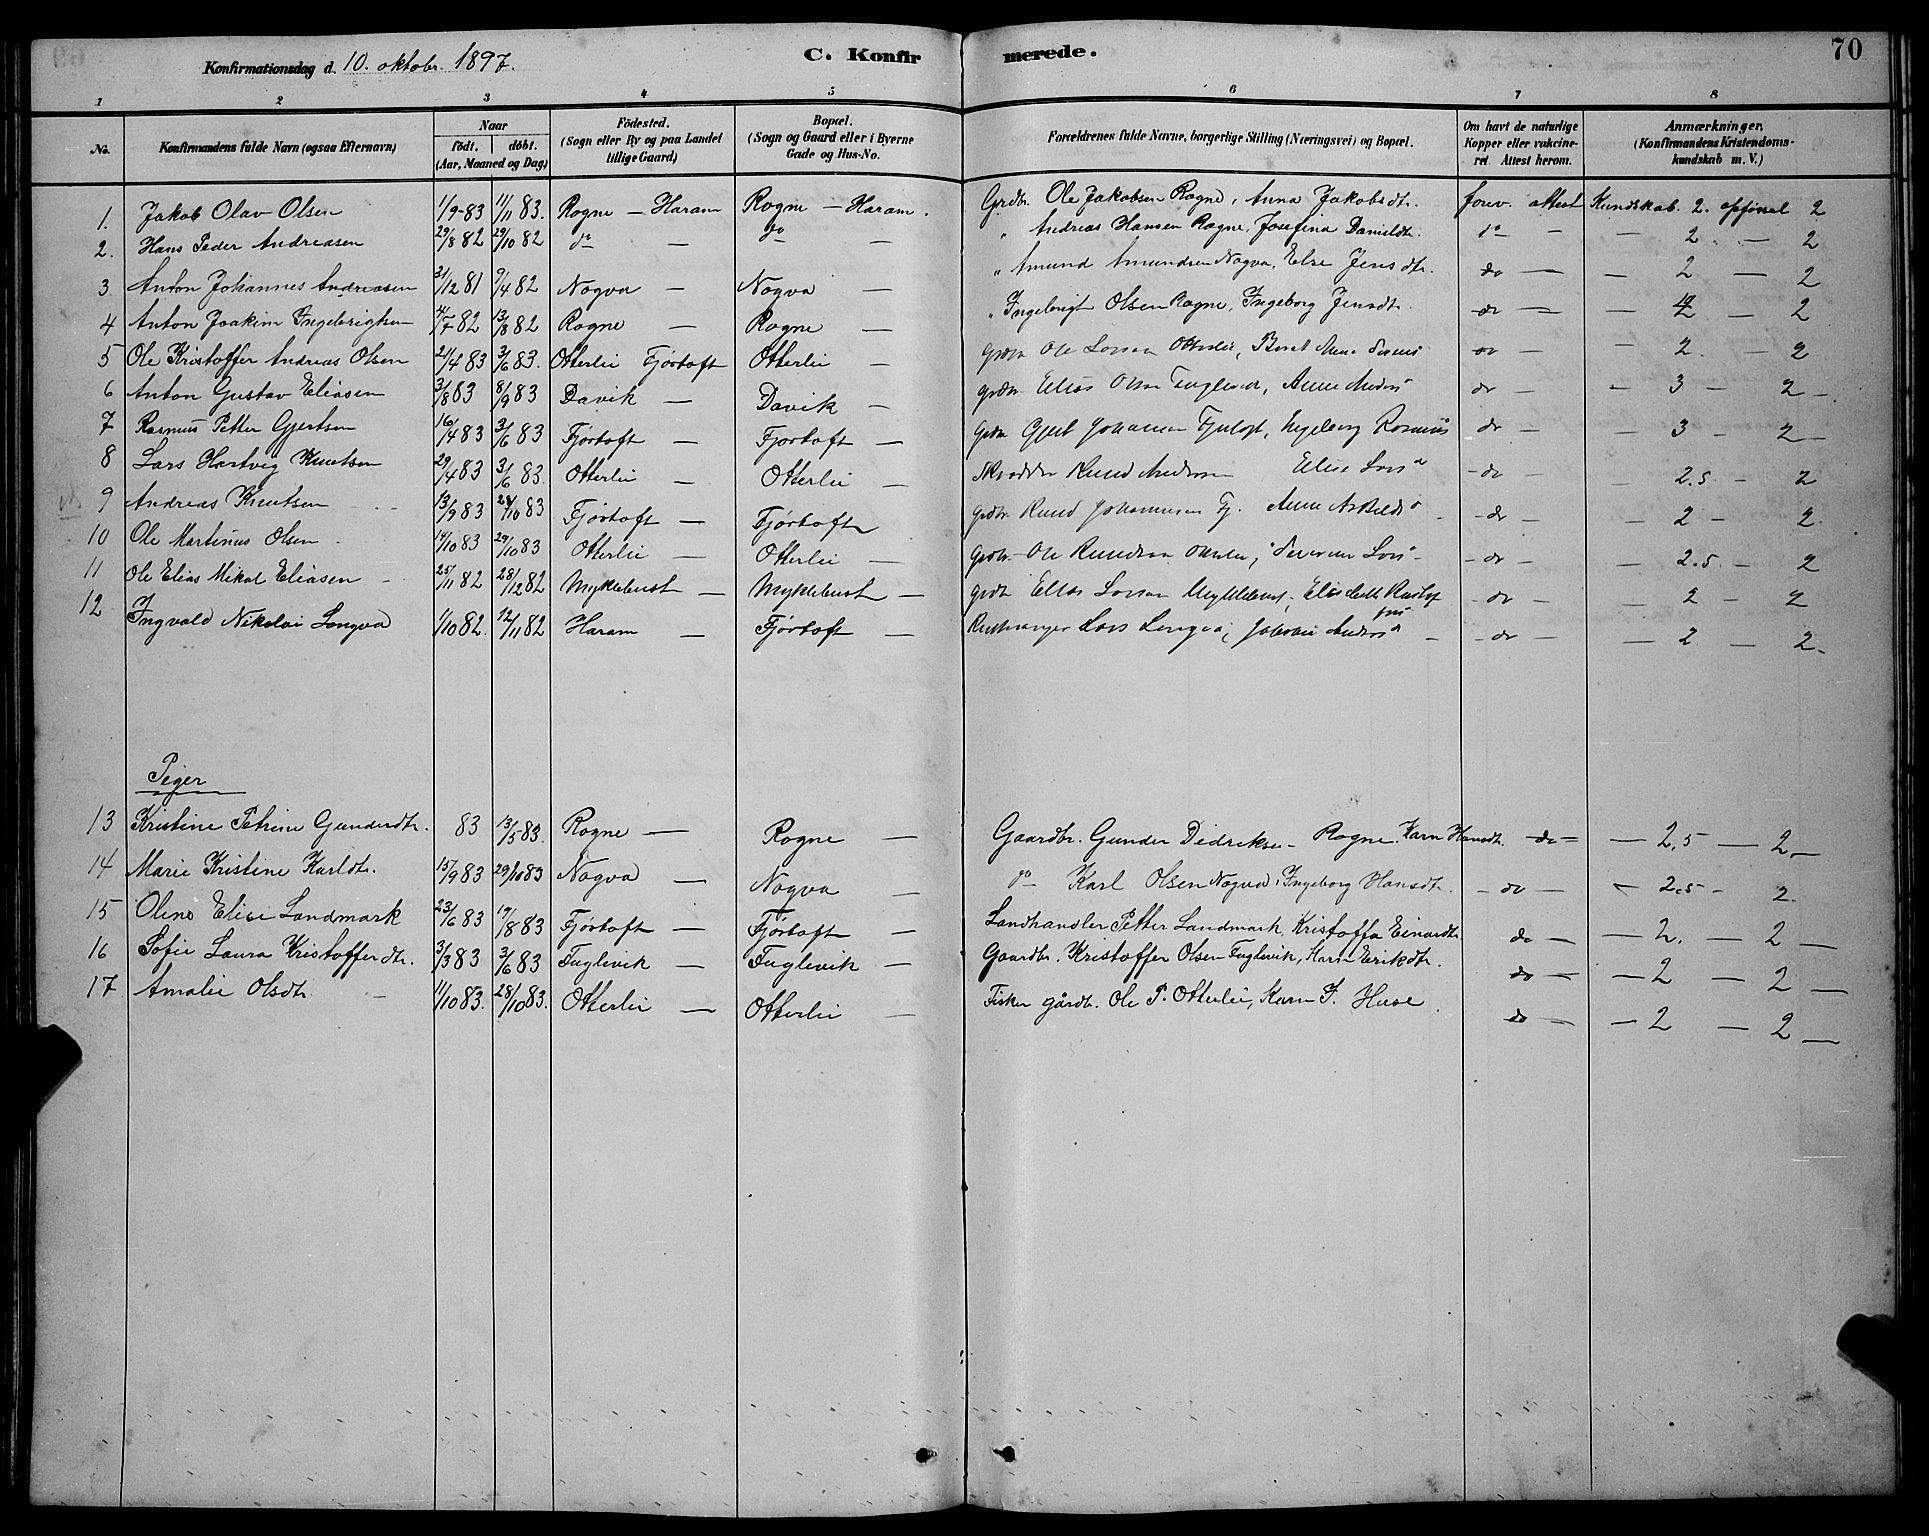 Konfirmationsdag d. 10. oktobr. 1897. C. Konfirmerede. 70
1 2 3 4 5 6 7 8
No. Konfirmandens fulde Navn (ogsaa Efternavn) Naar født. døbt. (Aar, Maaned og Dag) Fødested. (Sogn eller By og paa Landet tillige Gaard) Bopæl. (Sogn og Gaard eller i Byerne Gade og Hus-No. Forældrenes fulde Navne, borgerlige Stilling (Næringsvei) og Bopæl. Om havt de naturlige Kopper eller vakcineret. Attest herom. Anmærkninger. (Konfirmandens Kristendomskundskab m. V.)
1. Jakob Olav Olsen 1/9-83 11/11 83. Rogne — Haram Rogne — Haram. Grdbr. Ole Jakobsen Rogne, Anna Jakobsdtr. forev. attest Kundskab. 2. opførsel 2
2. Hans Peder Andreasen 29/8 82 29/10 82 do — do — " Andreas Hansen Rogne, Josefina Danieldtr. do — — 2. — 2
3. Anton Johannes Andreasen 31/12 81 9/4 82 Nogva — Nogva — " Amund Amundsen Nogva, Else Jensdtr. do — — 2 — 2
4 Anton Joakim Ingebrigtsen 4/7 82 13/8 82 Rogne — Rogne — " Ingebrigt Olsen Rogne, Ingeborg Jensdtr. do — — 2 — 2
5 Ole Kristoffer Andreas Olsen 21/4 83 3/6 83. Otterlei Fjørtoft Otterlei — grdbr Ole Larsen Otterlei, Beret do — — 2. — 2
6 Anton Gustav Eliasen 3/8 83 8/9 83 Davik — Davik — grdbr Elias Olsen Anne do — — 3 — 2 —
7 Rasmus Petter Gjertsen 16/4 83 3/6 83 Fjørtoft — Fjørtoft — grdbr Gjert Johansen Ingeborg Rasmus do — — 3 — 2 —
8 Lars Hartvig Knutsen 29/4 83 3/6 83. Otterlei — Otterlei — Skrædder Knud Andersen Elise Lars" — do — — 2.5 — 2
9 Andreas Knutsen 13/9 83 28/10 83 Fjørtoft — Fjørtoft grdbr Knud Johannesen Fj. Anne — do — — 2 — 2.
10 Ole Martinus Olsen 14/10 83 29/10 83 Otterlei — Otterlei — grdbr Ole Knudsen Otterlei, Severine Lars" — do — — 2.5 — 2
11 Ole Elias Mikal Eliasen 25/11 82 28/12 82 Myklebust — Myklebust — grdbr Elias Larsen Myklebust, Elisabeth — do — — 2 — 2
12 Ingvald Nikolai Longva 1/10 82. 12/11 82 Haram — Fjørtoft — Lars Longva, Anders" — — do — — 2 — 2.
Piger
13 Kristine Petrine Gunderdtr. 83 13/5 83. Rogne — Rogne — Gaardbr. Gunder Didriksen Rogne. Karn Hansdtr. — do — — 2,5 — 2 —
14 Marie Kristine Karldtr. 15/9 83 29/10 83 Nogva — Nogva — do — Karl Olsen Nogva, Ingeborg Hansdtr. — do — — 2.5 — 2.
15 Oline Elise Landmark 23/6 83 19/8 83 Fjørtoft — Fjørtoft — Landhandler Petter Landmark, Kristoffa Einardtr. do — — 2. — 2 —
16 Sofie Laura Kristofferdtr. 3/3 83 3/6 83 Fuglevik — Fuglevik — Gaardbr. Kristoffer Olsen Fuglevik, Karn Erikdtr. do — — 2 — 2 —
17 Amalie Olsdtr. 11/10 83. 28/10 83. Otterlei — Otterlei — Fisker gårdbr. Ole P. Otterlei, Karn I. Huse do — — 2 — 2 —